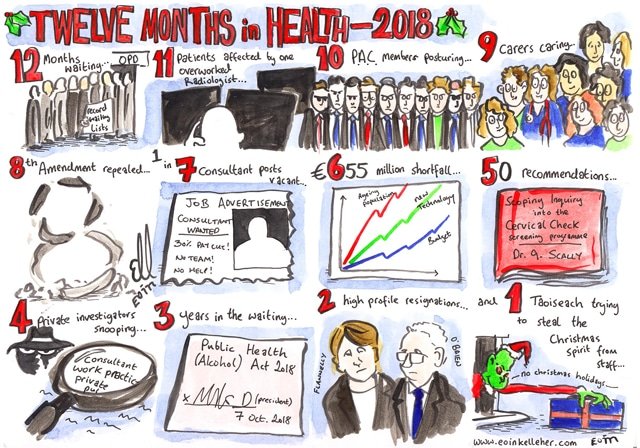 TWELVE MONTHS in HEALTH - 2018
12 Months waiting...
OPD
record waiting Lists
11 Patients affected by one overworked Radiologist...
10 PAC members posturing...
9 Carers caring...
8th Amendment repealed...
1 in 7 Consultant posts vacant...
JOB ADVERTISEMENT
CONSULTANT
WANTED
30% PAY CUT!
NO TEAM!
NO HELP!
€655 million shortfall...
Ageing population
new Technology
Budget
50 recommendations...
Scoping Inquiry
into the
Cervical Check
screening programme
Dr. G. SCALLY
Eoin
4 Private investigators
snooping...
Consultant
work practice
private
3 years in the waiting...
Public Health
(Alcohol) Act 2018
x (president)
7 Oct. 2018
2 high profile resignations...
FLANNELLY
O'BRIEN
and 1 Taoiseach trying
to steal the
Christmas
spirit from
staff...
no christmas holidays
www.eoinkelleher.com
Eoin